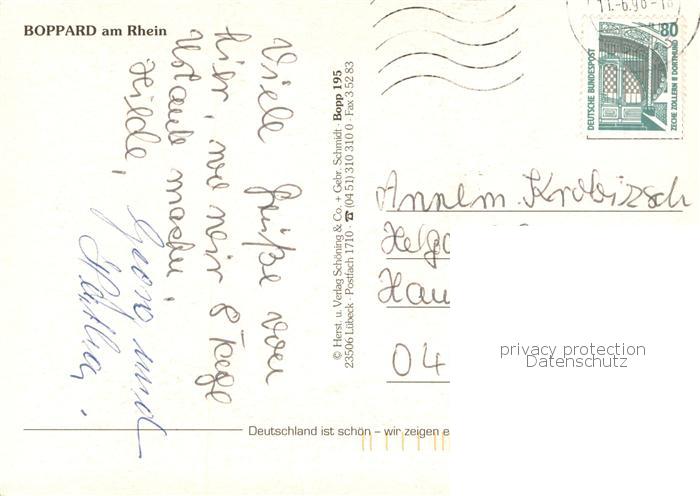 BOPPARD am Rhein
Viele Grüße von
hier, wo wir 8 Tage
Urlaub machen,
Hilde, Georg und
Kätha.
© Herst. u. Verlag Schöning & Co. + Gebr. Schmidt · Bopp 195
23506 Lübeck · Postfach 1710 · ☎ (04 51) 310 310 0 · Fax 3 52 83
11.-6.96-18
80
DEUTSCHE BUNDESPOST
ZECHE ZOLLERN II DORTMUND
Annem. Krobizsch
Helgo
Hau
04
privacy protection
Datenschutz
Deutschland ist schön – wir zeigen e